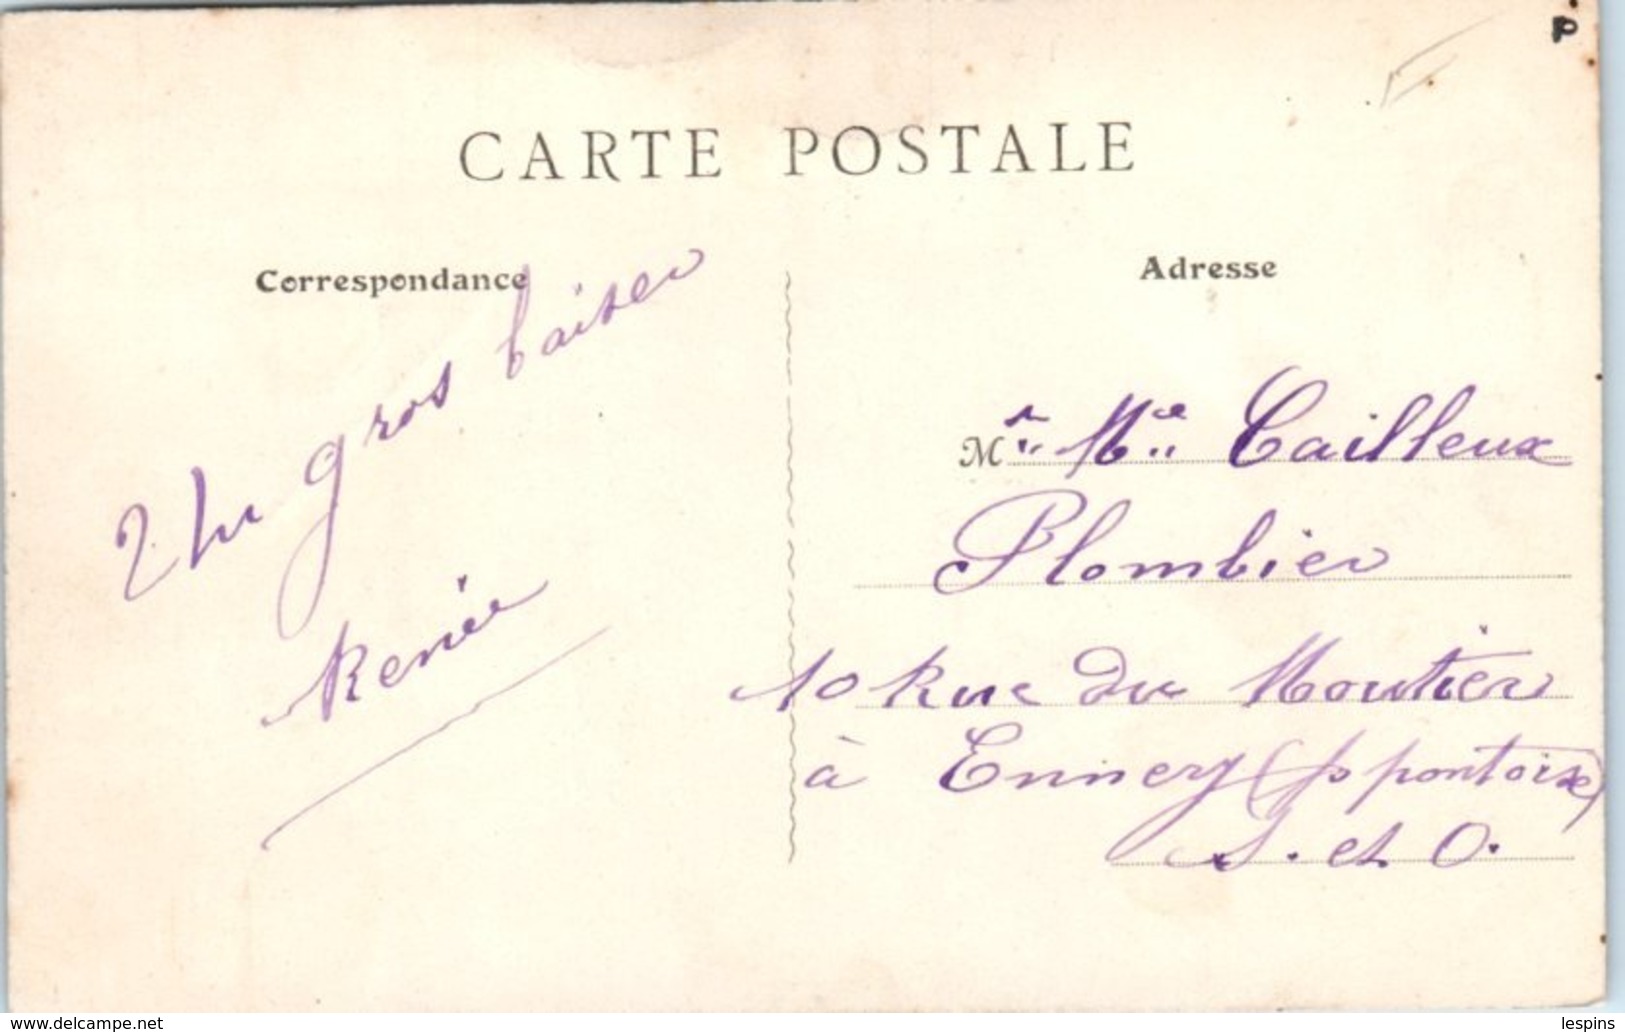 P
CARTE POSTALE
Correspondance
Un gros baiser
Renée
Adresse
Mr. Me. Cailleux
Plombier
10 Rue du Moutier
à Ennery (p pontoise)
S. et O.
www.delcampe.net
lespins